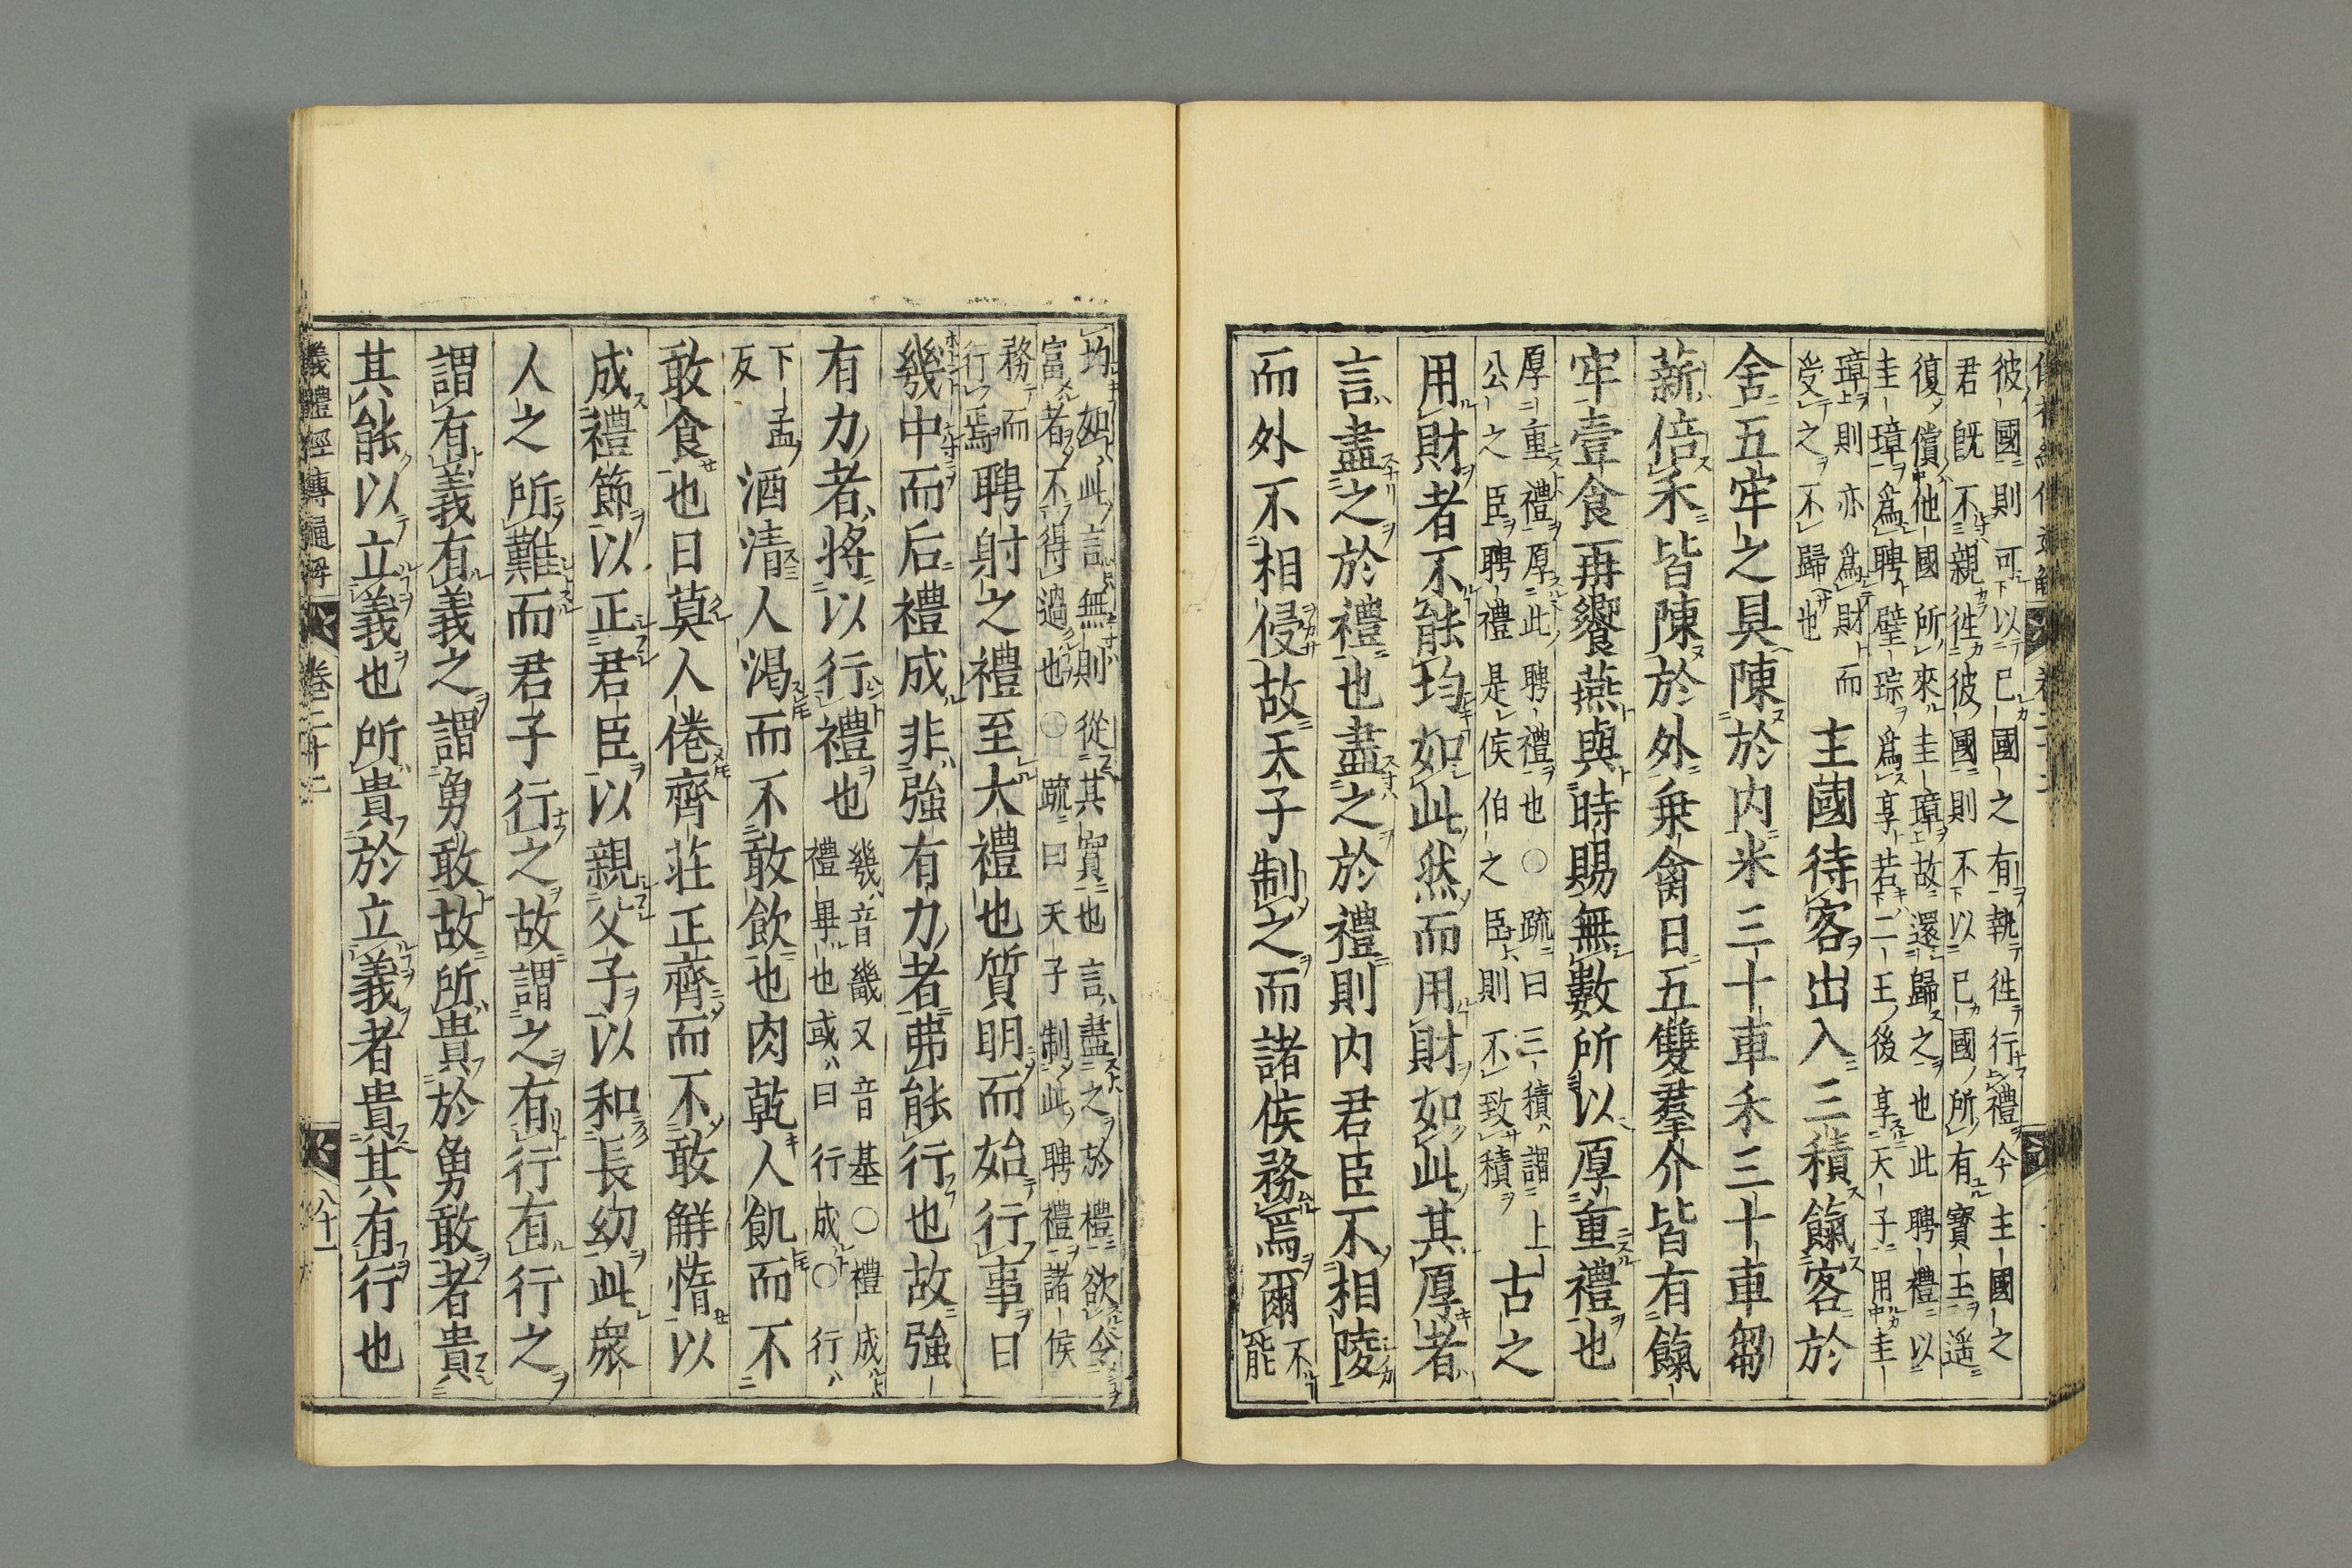 彼國則可以已國之有執徃行禮今主國之
君既不親徃彼國則不以已國所有寳玉遥
復償他國所來圭璋故還歸之也此聘禮以
圭璋爲聘璧琮爲享若二王後享天子用圭
璋則亦爲財而
受之不歸也
主國待客出入三積餼客於
舍五牢之具陳於内米三十車禾三十車芻
薪倍禾皆陳於外乗禽日五雙羣介皆有餼
牢壹食再饗燕與時賜無數所以厚重禮也
厚重禮厚此聘禮也○疏曰三積謂上
公之臣聘禮是侯伯之臣則不致積
古之
用財者不能均如此然而用財如此其厚者
言盡之於禮也盡之於禮則内君臣不相陵
而外不相侵故天子制之而諸侯務焉爾
不
能
均如此言無則從其實也言盡之於禮欲令
富者不得過也○疏曰天子制此聘禮諸侯
務而
行焉
聘射之禮至大禮也質明而始行事日
幾中而后禮成非強有力者弗能行也故強
有力者將以行禮也
幾音畿又音基○禮成
禮畢也或曰行成○行
下孟
反
酒清人渇而不敢飲也肉乾人飢而不
敢食也日莫人倦齊荘正齊而不敢解惰以
成禮節以正君臣以親父子以和長幼此衆
人之所難而君子行之故謂之有行有行之
謂有義有義之謂勇敢故所貴於勇敢者貴
其能以立義也所貴於立義者貴其有行也
儀禮經傳通解
卷二十二
八十一